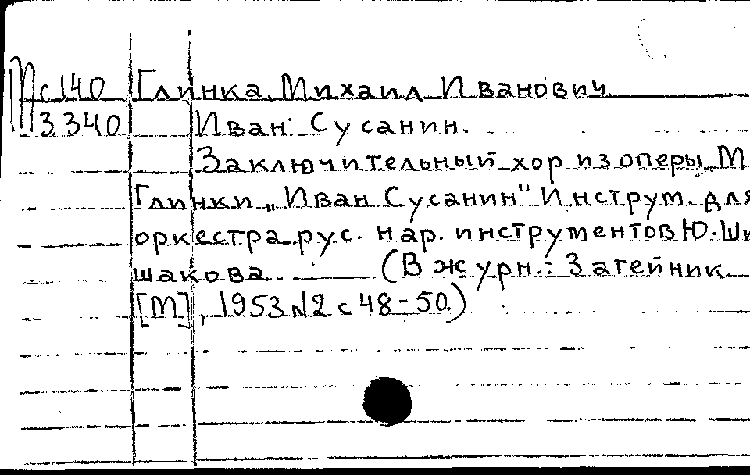 Мс140 Глинка Михаил Иванович
М3340 Иван Сусанин.
Заключительный хор из оперы М
Глинки „Иван Сусанин" Инструм. для
оркестра рус. нар. инструментов Ю. Ши
шакова (В журн.: Затейник
[М], 1953 №2 с 48-50.)